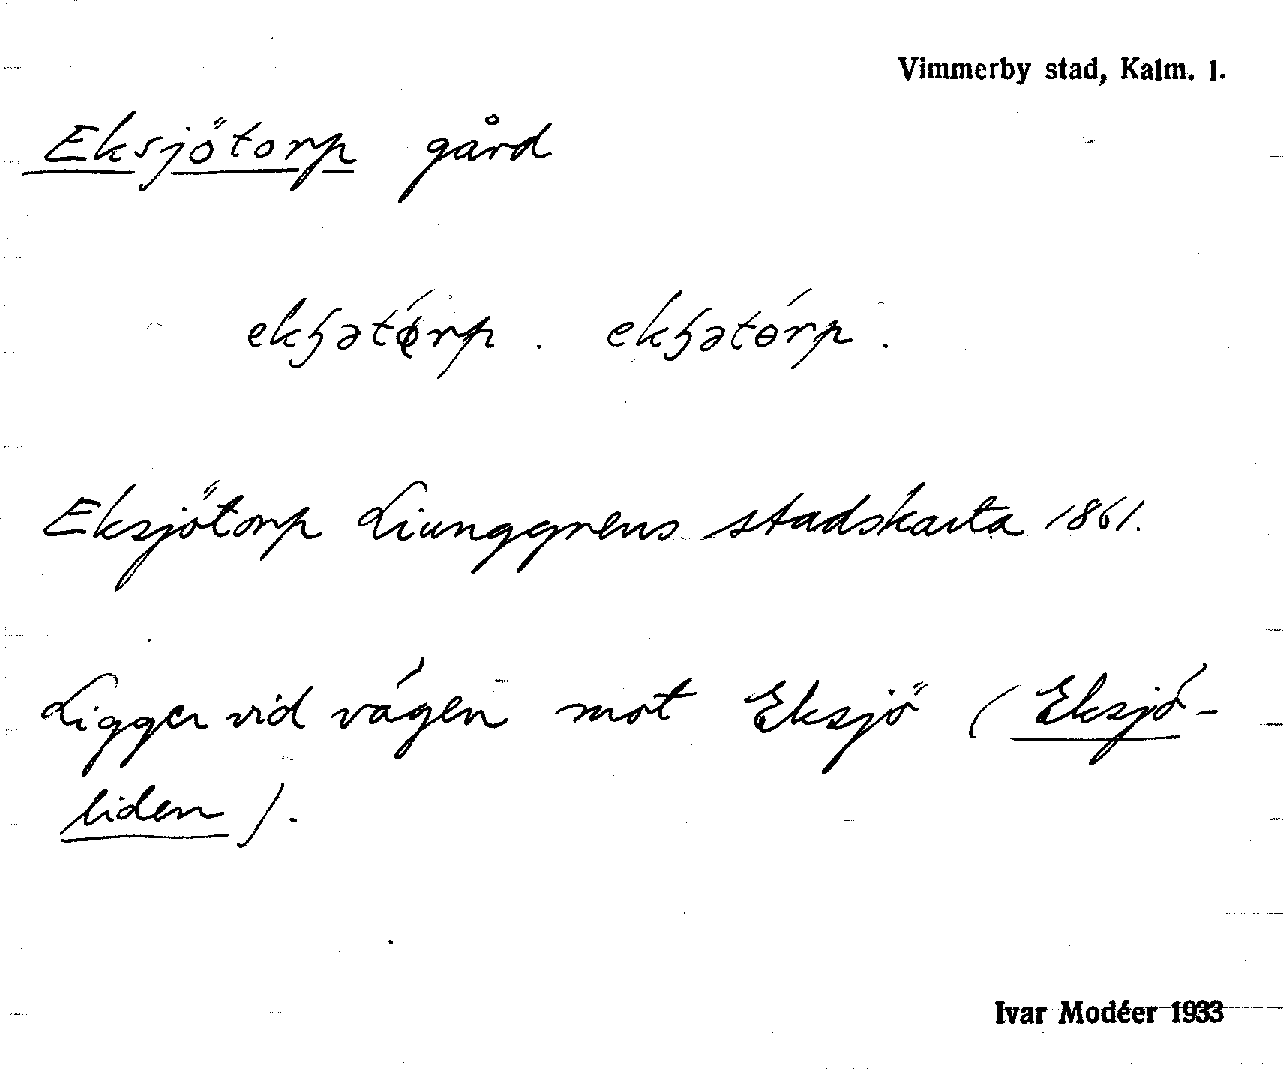 Vimmerby stad, Kalm. l.
Eksjötorp gård
ekʂətórp . ekʂətórp .
Eksjötorp Liunggrens stadskarta 1861.
Ligger vid vägen mot Eksjö (Eksjö-
liden).
Ivar Modéer 1933